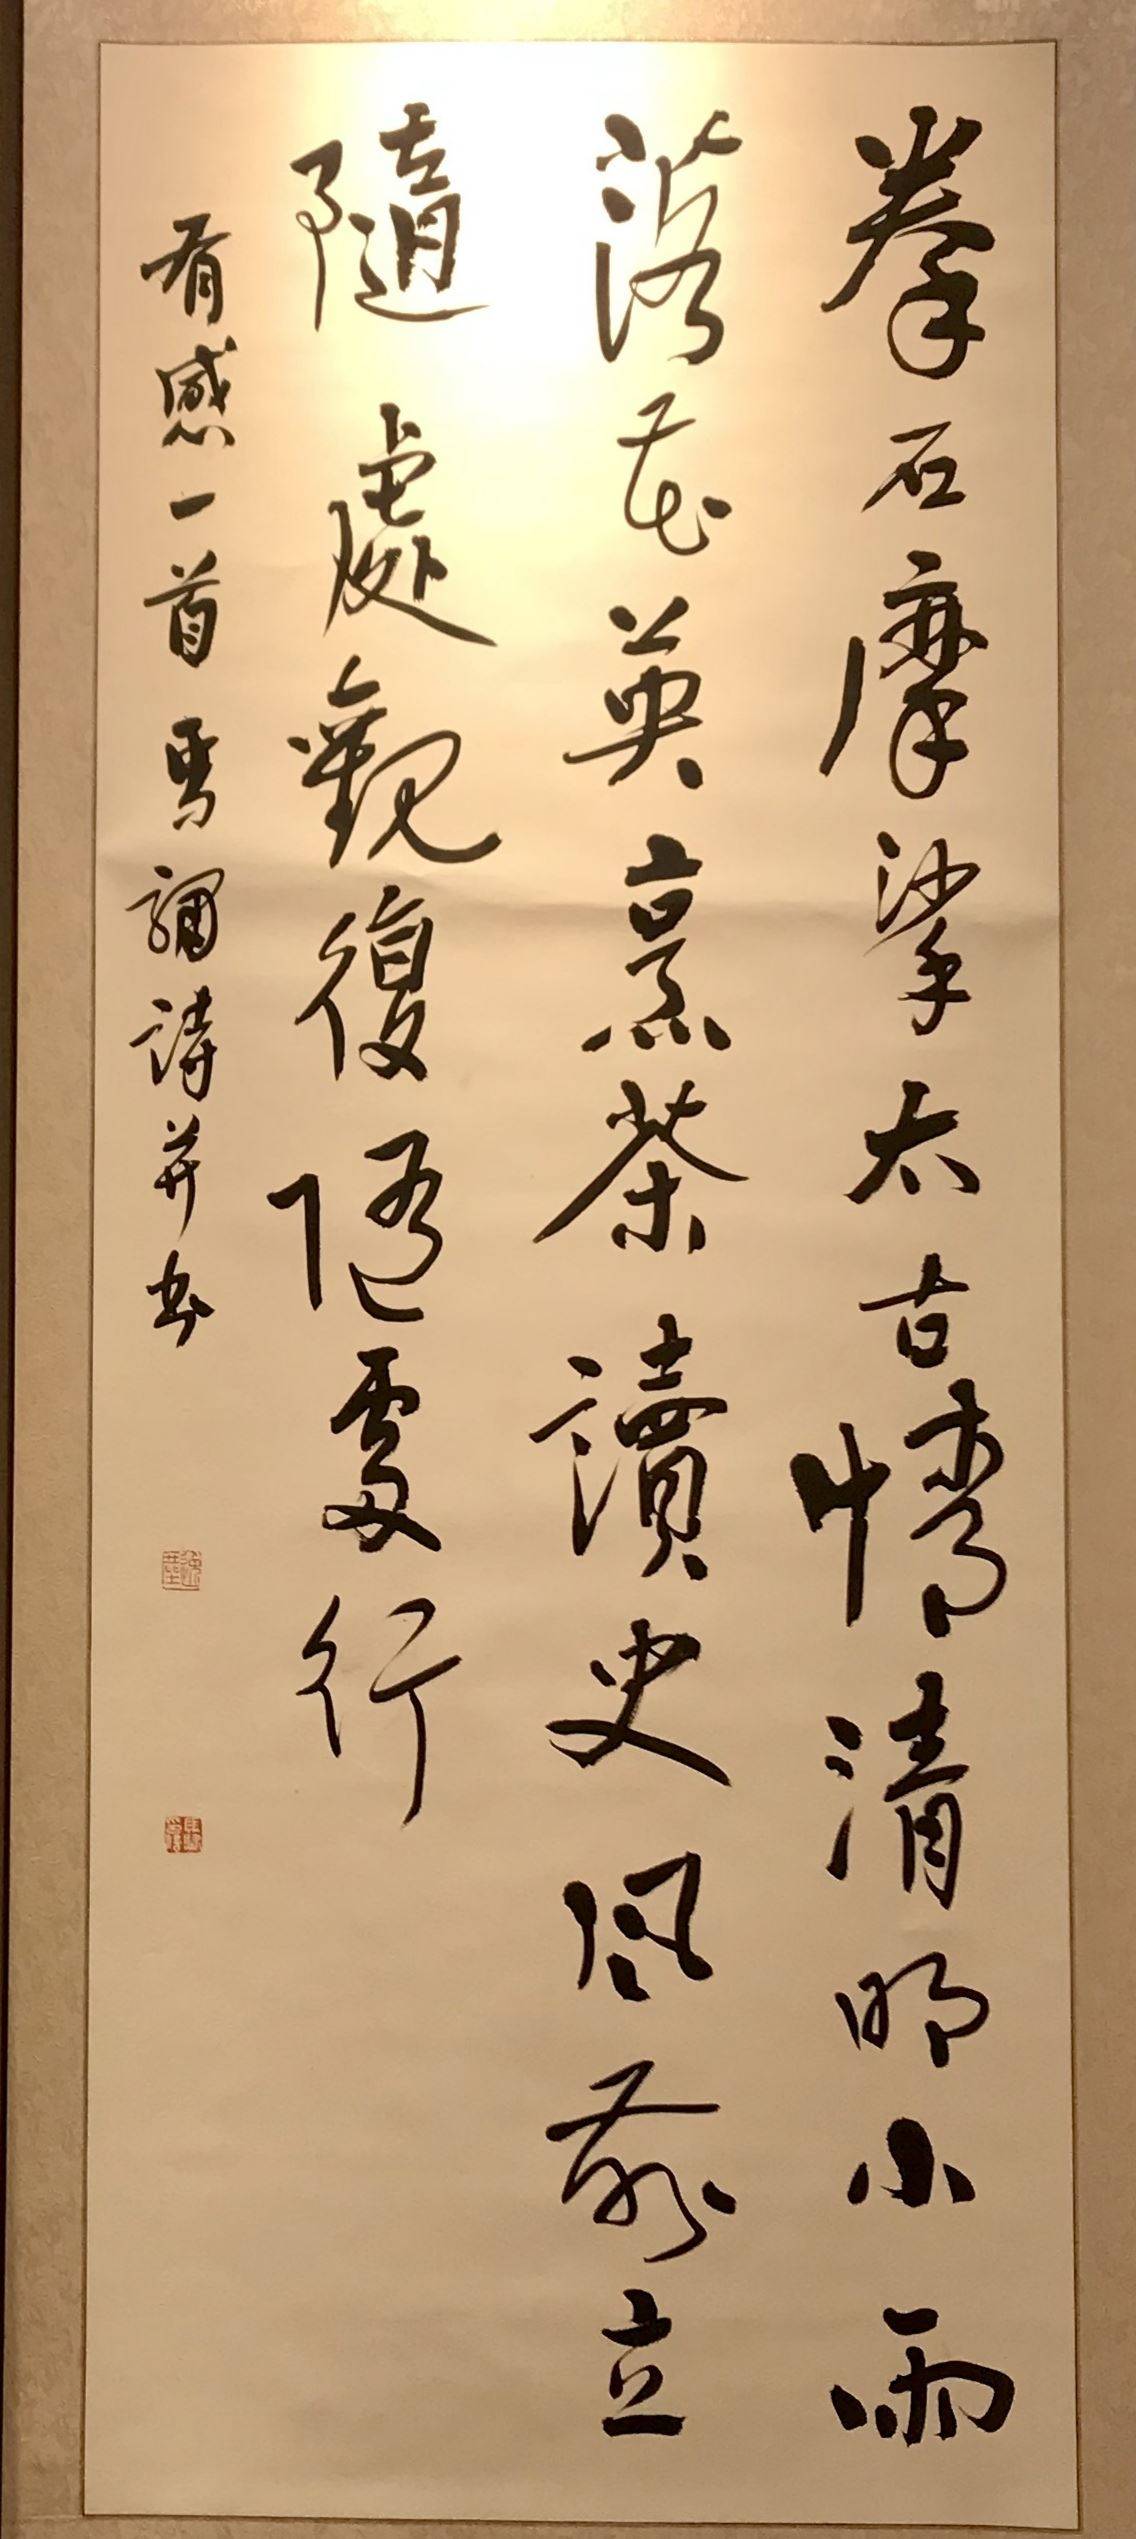 拳石摩挲太古情清明小雨
落花英烹茶讀史風前立
隨處觀復隨處行
有感一首馬彌詩并書